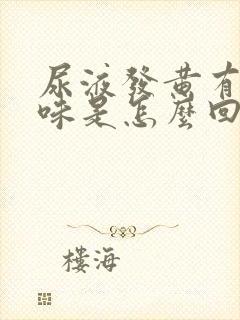 尿液發黄有
味是怎麼回
樓海